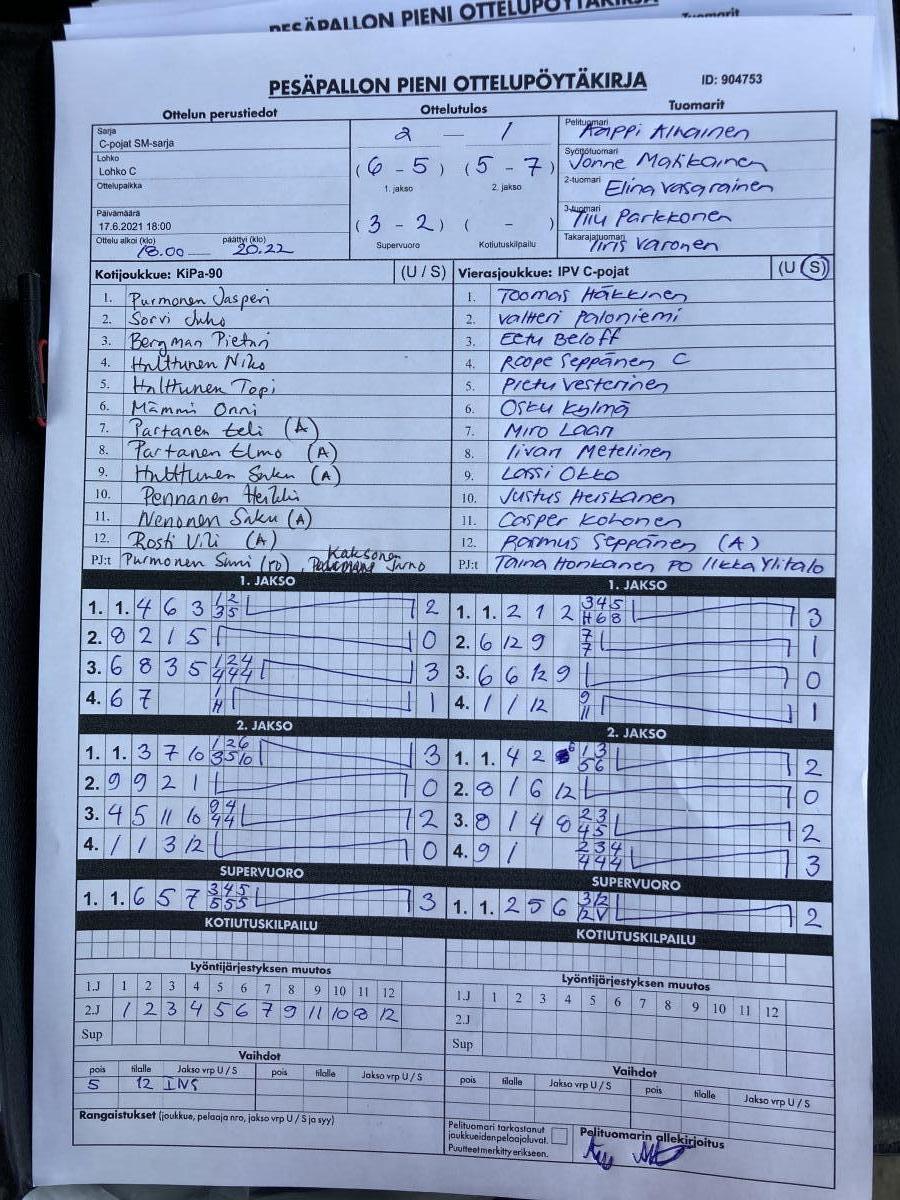 PESÄPALLON PIENI OTTELUPÖYTÄKIRJA
Tuomarit
PESÄPALLON PIENI OTTELUPÖYTÄKIRJA ID: 904753
Ottelun perustiedot Ottelutulos Tuomarit
Sarja
C-pojat SM-sarja
Lohko
Lohko C
Ottelupaikka
Päivämäärä
17.6.2021 18:00
Ottelu alkoi (klo) päättyi (klo)
18.00 — 20.22
2 — 1
(6 - 5) (5 - 7)
1. jakso 2. jakso
(3 - 2) ( - )
Supervuoro Kotiutuskilpailu
Pelituomari
Kappi Alhainen
Syöttötuomari
Jonne Makkainen
2-tuomari Elina Vasarainen
3-tuomari
Tiiu Parkkonen
Takarajatuomari
Iiris Varonen
Kotijoukkue: KiPa-90 (U / S)
1. Purmonen Jasperi
2. Sorvi Juho
3. Bergman Pietari
4. Hulttunen Niko
5. Hulttunen Topi
6. Mämmi Onni
7. Partanen Eeli (A)
8. Partanen Elmo (A)
9. Hulttunen Saku (A)
10. Pennanen Heikki
11. Nenonen Saku (A)
12. Rosti Vili (A)
PJ:t Purmonen Suni (PO), Kaksonen Juno
Vierasjoukkue: IPV C-pojat (U / S)
1. Toomas Häkkinen
2. Valtteri Paloniemi
3. Eetu Beloff
4. Roope Seppänen C
5. Pietu Vesterinen
6. Osku Kylmä
7. Miro Laan
8. Iivari Metelinen
9. Lassi Okko
10. Justus Heiskanen
11. Casper Kohonen
12. Rasmus Seppänen (A)
PJ:t Taina Honkanen PO Ilkka Ylitalo
1. JAKSO
1. 1. 4 6 3 1 2 2
3 5
2. 8 2 1 5 0
3. 6 8 3 5 1 2 4 3
4 4 4
4. 6 7 1 1
H
2. JAKSO
1. 1. 3 7 10 1 2 6 3
3 5 10
2. 9 9 2 1 0
3. 4 5 11 10 9 4 2
4 4
4. 1 1 3 12 0
SUPERVUORO
1. 1. 6 5 7 3 4 5 3
5 5 5
KOTIUTUSKILPAILU
1. JAKSO
1. 1. 2 1 2 3 4 5 3
H 6 8
2. 6 12 9 7 1
7
3. 6 6 12 9 0
4. 1 1 12 9 1
11
2. JAKSO
1. 1. 4 2 6 1 3 2
5 6
2. 8 1 6 12 0
3. 8 1 4 8 2 3 2
4 5
4. 9 1 2 3 4 3
4 4 4
SUPERVUORO
1. 1. 2 5 6 3 12 2
12 V
KOTIUTUSKILPAILU
Lyöntijärjestyksen muutos
1.J 1 2 3 4 5 6 7 8 9 10 11 12
2.J 1 2 3 4 5 6 7 9 11 10 8 12
Sup
Vaihdot
pois tilalle Jakso vrp U / S pois tilalle Jakso vrp U / S
5 12 INS
Rangaistukset (joukkue, pelaaja nro, jakso vrp U / S ja syy)
Lyöntijärjestyksen muutos
1.J 1 2 3 4 5 6 7 8 9 10 11 12
2.J
Sup
Vaihdot
pois tilalle Jakso vrp U / S pois tilalle Jakso vrp U / S
Pelituomari tarkastanut
joukkueidenpelaajaluvat.
Puutteet merkitty erikseen.
Pelituomarin allekirjoitus